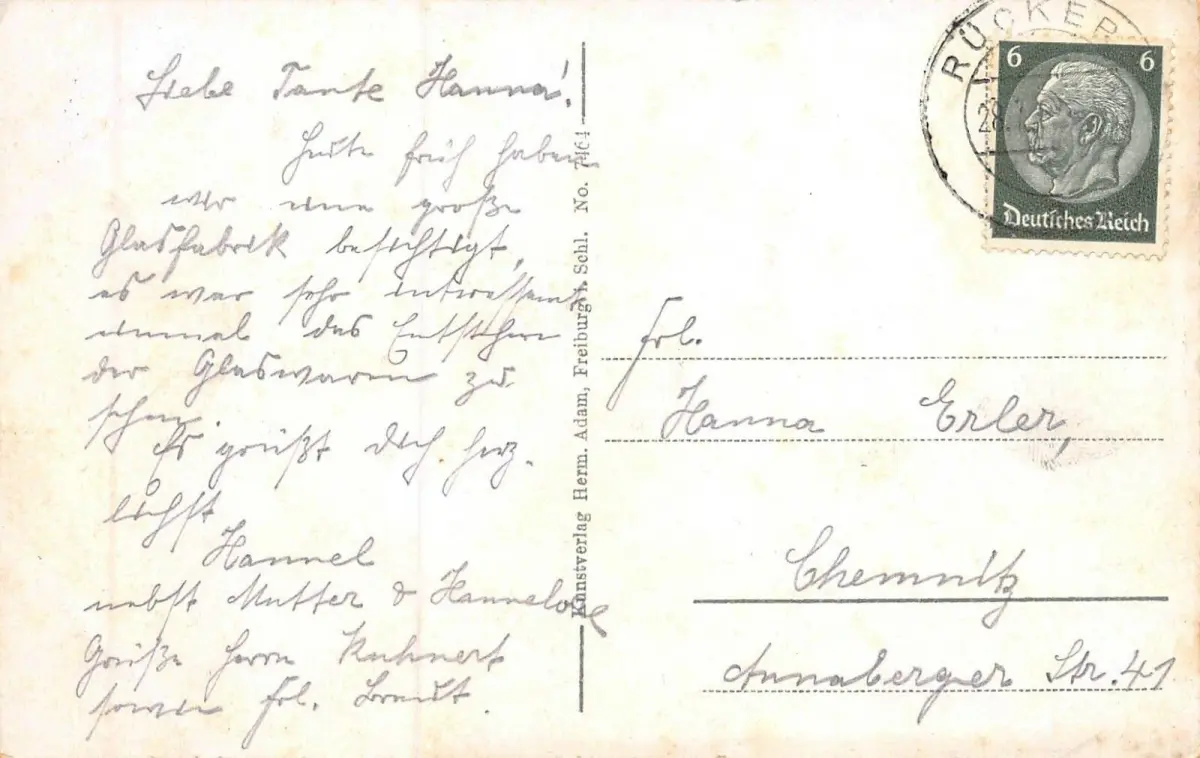 Liebe Tante Hanna!
Heute früh haben
wir eine große
Glasfabrik besichtigt,
es war sehr interessant
einmal das Entstehen
der Glaswaren zu
sehen.
Es grüßt Dich herz-
lichst
Hannel
nebst Mutter & Hannelore
Grüße Herrn Kuhnert
sowie Frl.
Kunstverlag Herm. Adam, Freiburg i. Schl. No. 7464
RÜCKER
28.
6 6
Deutsches Reich
Frl.
Hanna Erler,
Chemnitz
Annaberger Str. 41